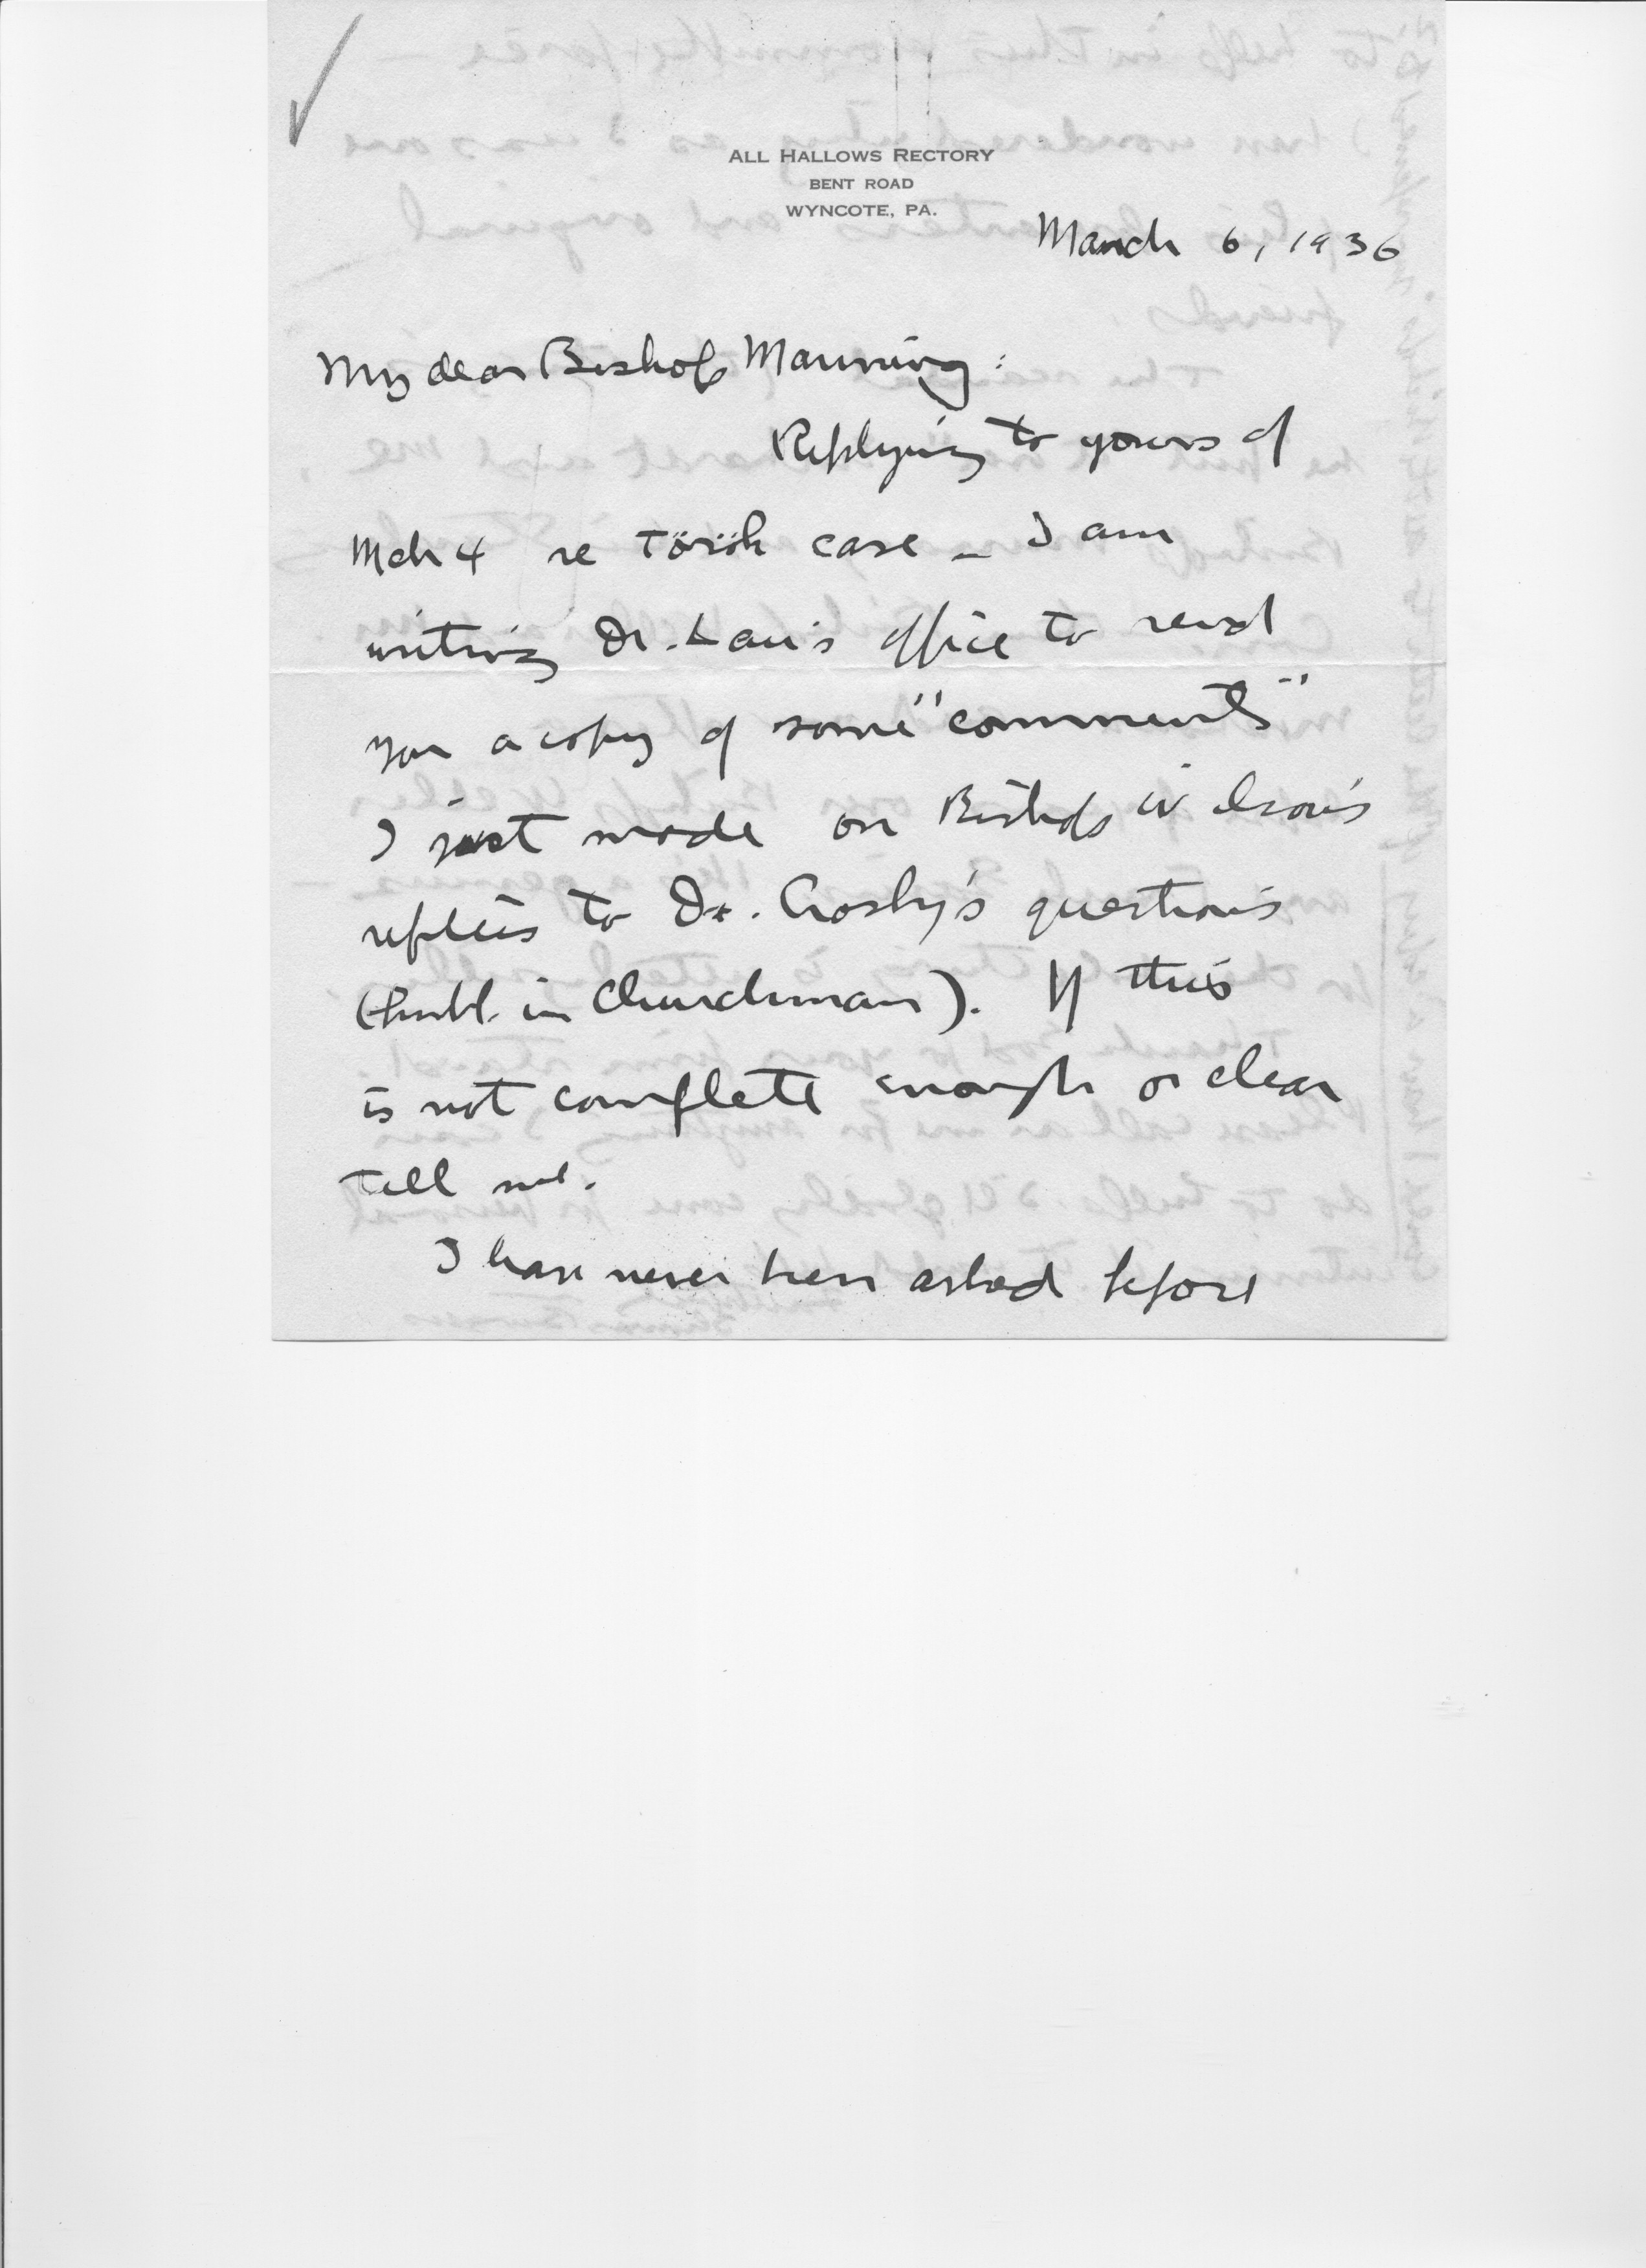 ALL HALLOWS RECTORY
BENT ROAD
WYNCOTE, PA.
March 6, 1936
My dear Bishop Manning:
Replying to yours of
Mch 4 re Török case – I am
writing Dr. Lau's office to send
you a copy of some "comments"
I just made on Bishop Wilson's
replies to Dr. Crosby's questions
(publ. in Churchman). If this
is not complete enough or clear
tell me.
I have never been asked before